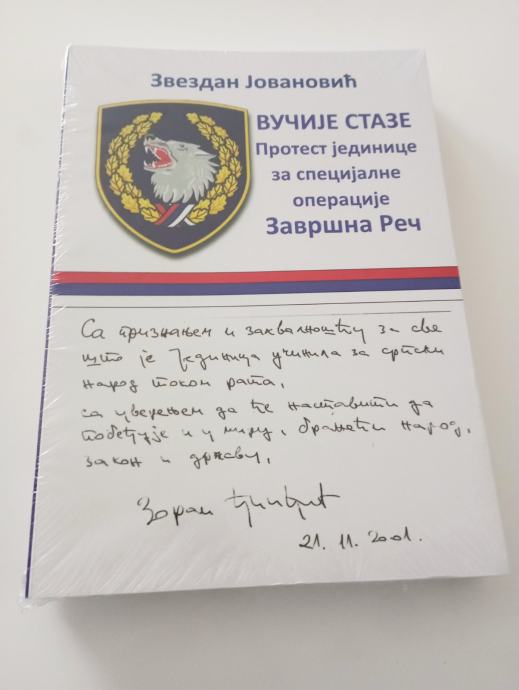 Звездан Јовановић
ВУЧИЈЕ СТАЗЕ
Протест јединице
за специјалне
операције
Завршна Реч
Са признањем и захвалношћу за све
што је Јединица учинила за српски
народ током рата,
са уверењем да ће наставити да
побеђује и у миру, бранећи народ,
закон и државу,
Зоран Ђинђић
21. 11. 2001.